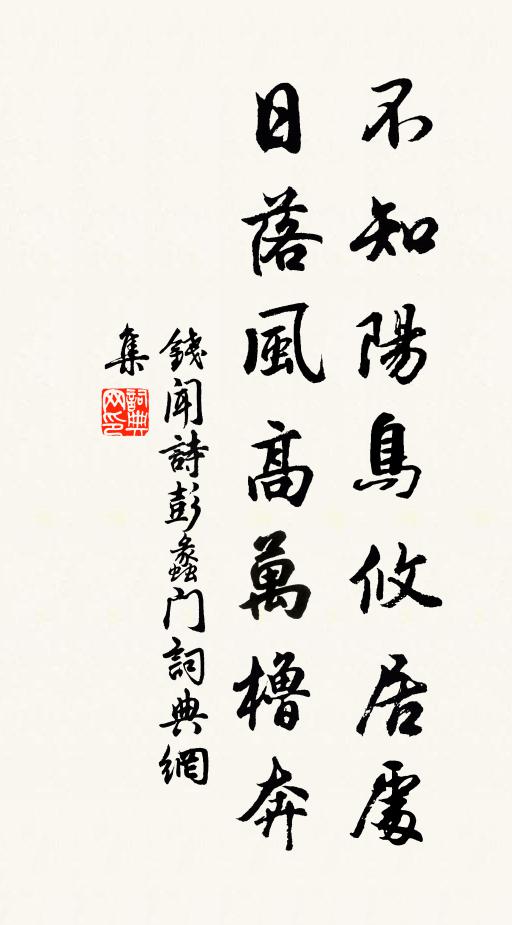 不知陽鳥攸居處
日落風高萬櫓奔
錢聞詩彭蠡门詞典網
集
詞典
网印